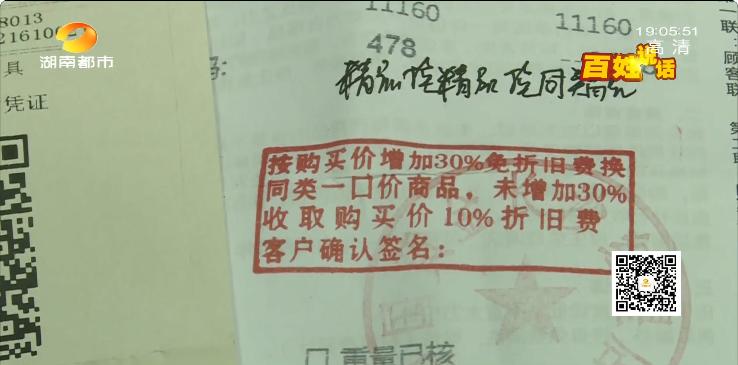 8013
216100
湖南都市
具
凭证
11160
11160
478
19:05:51
高清
百姓说话
一联
顾客联
精品 精品 同
按购买价增加30%免折旧费换
同类一口价商品，未增加30%
收取购买价10%折旧费
客户确认签名：
口 重量已核